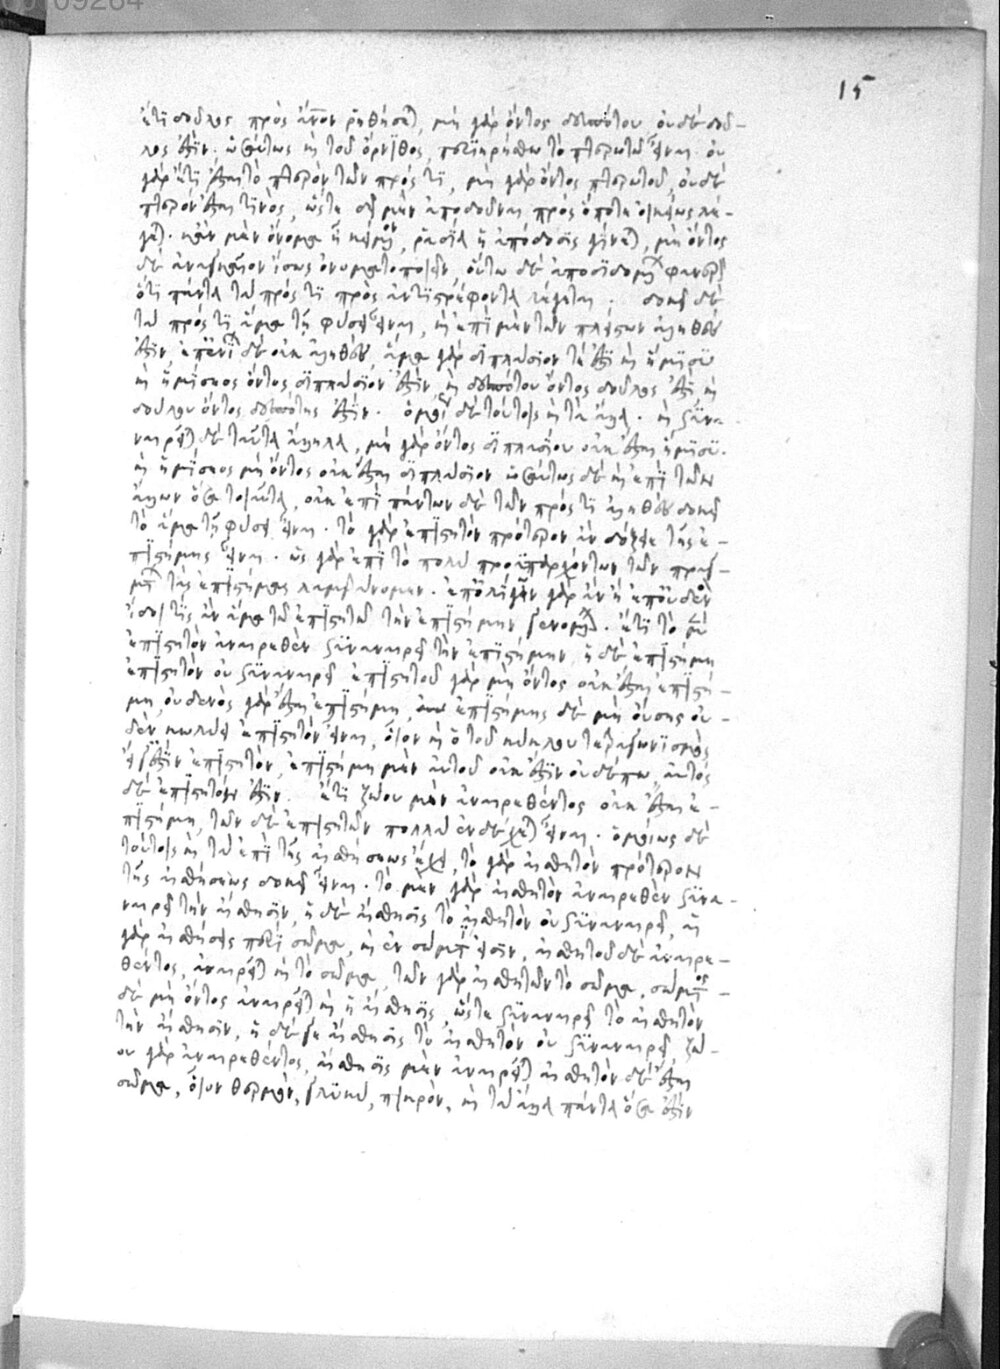 09284
15
ἔτι δοῦλος πρὸς ἄνον ῥηθήσετ(αι), μὴ γὰρ ὄντος δεσπότου οὐδὲ δοῦ-
λος ἐστὶν. ὡσαύτως κ(αὶ) τοῦ ὄρνιθος, περιῃρήσθω τὸ πτερωτῶ εἶναι. οὐ
γὰρ ἔτι ἔσται τὸ πτερὸν τῶν πρός τι, μὴ γὰρ ὄντος πτερωτοῦ, οὐδὲ
πτερὸν ἔσται τινὸς, ὥστε δεῖ μὲν ἀποδοῦναι πρὸς ὅ ποτε οἰκείως λέ-
γετ(αι). κἂν μὲν ὄνομα ᾖ κείμενον, ῥᾳδία ἡ ἀπόδοσις γίνετ(αι), μὴ ὄντος
δὲ ἀναγκαῖον ἴσως ὀνοματοποιεῖν, οὕτω δὲ ἀποδιδομένων φανερὸν
ὅτι πάντα τὰ πρός τι πρὸς ἀντιστρέφοντα λέγεται. δοκεῖ δὲ
τὰ πρός τι ἅμα τῇ φύσει εἶναι, κ(αὶ) ἐπὶ μὲν τῶν πλείστων ἀληθές
ἐστιν, ἐπ' ἐνίων δὲ οὐκ ἀληθές, ἅμα γὰρ διπλάσιόν τέ ἐστι κ(αὶ) ἥμισυ
κ(αὶ) ἡμίσεος ὄντος διπλάσιόν ἐστιν, κ(αὶ) δεσπότου ὄντος δοῦλος ἐστι, κ(αὶ)
δούλου ὄντος δεσπότης ἐστίν. ὁμοίως δὲ τούτοις κ(αὶ) τὰ ἄλλα. κ(αὶ) συνα-
ναιρεῖτ(αι) δὲ ταῦτα ἄλληλα, μὴ γὰρ ὄντος διπλασίου οὐκ ἔσται ἥμισυ.
κ(αὶ) ἡμίσεος μὴ ὄντος οὐκ ἔσται διπλάσιον ὡσαύτως δὲ κ(αὶ) ἐπὶ τῶν
ἄλλων ὅσα τοιαῦτα, οὐκ ἐπὶ πάντων δὲ τῶν πρός τι ἀληθὲς δοκεῖ
τὸ ἅμα τῇ φύσει εἶναι. τὸ γὰρ ἐπιστητὸν πρότερον ἂν δόξειε τῆς ἐ-
πιστήμης εἶναι. ὡς γὰρ ἐπὶ τὸ πολὺ προϋπαρχόντων τῶν πραγ-
μάτων τὰς ἐπιστήμας λαμβάνομεν. ἐπ' ὀλίγων γὰρ ἂν ἢ ἐπ' οὐδενὸς
ἴδοι τις ἂν ἅμα τῷ ἐπιστητῷ τὴν ἐπιστήμην γενομένην. ἔτι τὸ μὲν
ἐπιστητὸν ἀναιρεθὲν συναναιρεῖ τὴν ἐπιστήμην, ἡ δὲ ἐπιστήμη
ἐπιστητὸν οὐ συναναιρεῖ ἐπιστητοῦ γὰρ μὴ ὄντος οὐκ ἔσται ἐπιστή-
μη, οὐδενὸς γὰρ ἔσται ἐπιστήμη, ἐπιστήμης δὲ μὴ οὔσης οὐ-
δὲν κωλύει ἐπιστητὸν εἶναι, οἷον κ(αὶ) ὁ τοῦ κύκλου τετραγωνισμὸς
εἴ γ' ἐστιν ἐπιστητὸν, ἐπιστήμη μὲν αὐτοῦ οὐκ ἔστιν οὐδέπω, αὐτὸς
δὲ ἐπιστητόν ἐστιν. ἔτι ζῴου μὲν ἀναιρεθέντος οὐκ ἔσται ἐ-
πιστήμη, τῶν δὲ ἐπιστητῶν πολλὰ ἐνδέχετ(αι) εἶναι. ὁμοίως δὲ
τούτοις κ(αὶ) τὰ ἐπὶ τῆς αἰσθήσεως ἔχει, τὸ γὰρ αἰσθητὸν πρότερον
τῆς αἰσθήσεως δοκεῖ εἶναι. τὸ μὲν γὰρ αἰσθητὸν ἀναιρεθὲν συνα-
ναιρεῖ τὴν αἴσθησιν, ἡ δὲ αἴσθησις τὸ αἰσθητὸν οὐ συναναιρεῖ, αἱ
γὰρ αἰσθήσεις περὶ σῶμα, κ(αὶ) ἐν σώματί εἰσιν, αἰσθητοῦ δὲ ἀναιρε-
θέντος, ἀναιρεῖτ(αι) κ(αὶ) τὸ σῶμα, τῶν γὰρ αἰσθητῶν τὸ σῶμα, σώματος
δὲ μὴ ὄντος ἀναιρεῖτ(αι) κ(αὶ) ἡ αἴσθησις, ὥστε συναναιρεῖ τὸ αἰσθητὸν
τὴν αἴσθησιν, ἡ δέ γε αἴσθησις τὸ αἰσθητὸν οὐ συναναιρεῖ, ζῴ-
ου γὰρ ἀναιρεθέντος, αἴσθησις μὲν ἀναιρεῖτ(αι) αἰσθητὸν δὲ ἔσται
σῶμα, οἷον θερμὸν, γλυκὺ, πικρὸν, κ(αὶ) τὰ ἄλλα πάντα ὅσα ἐστὶν